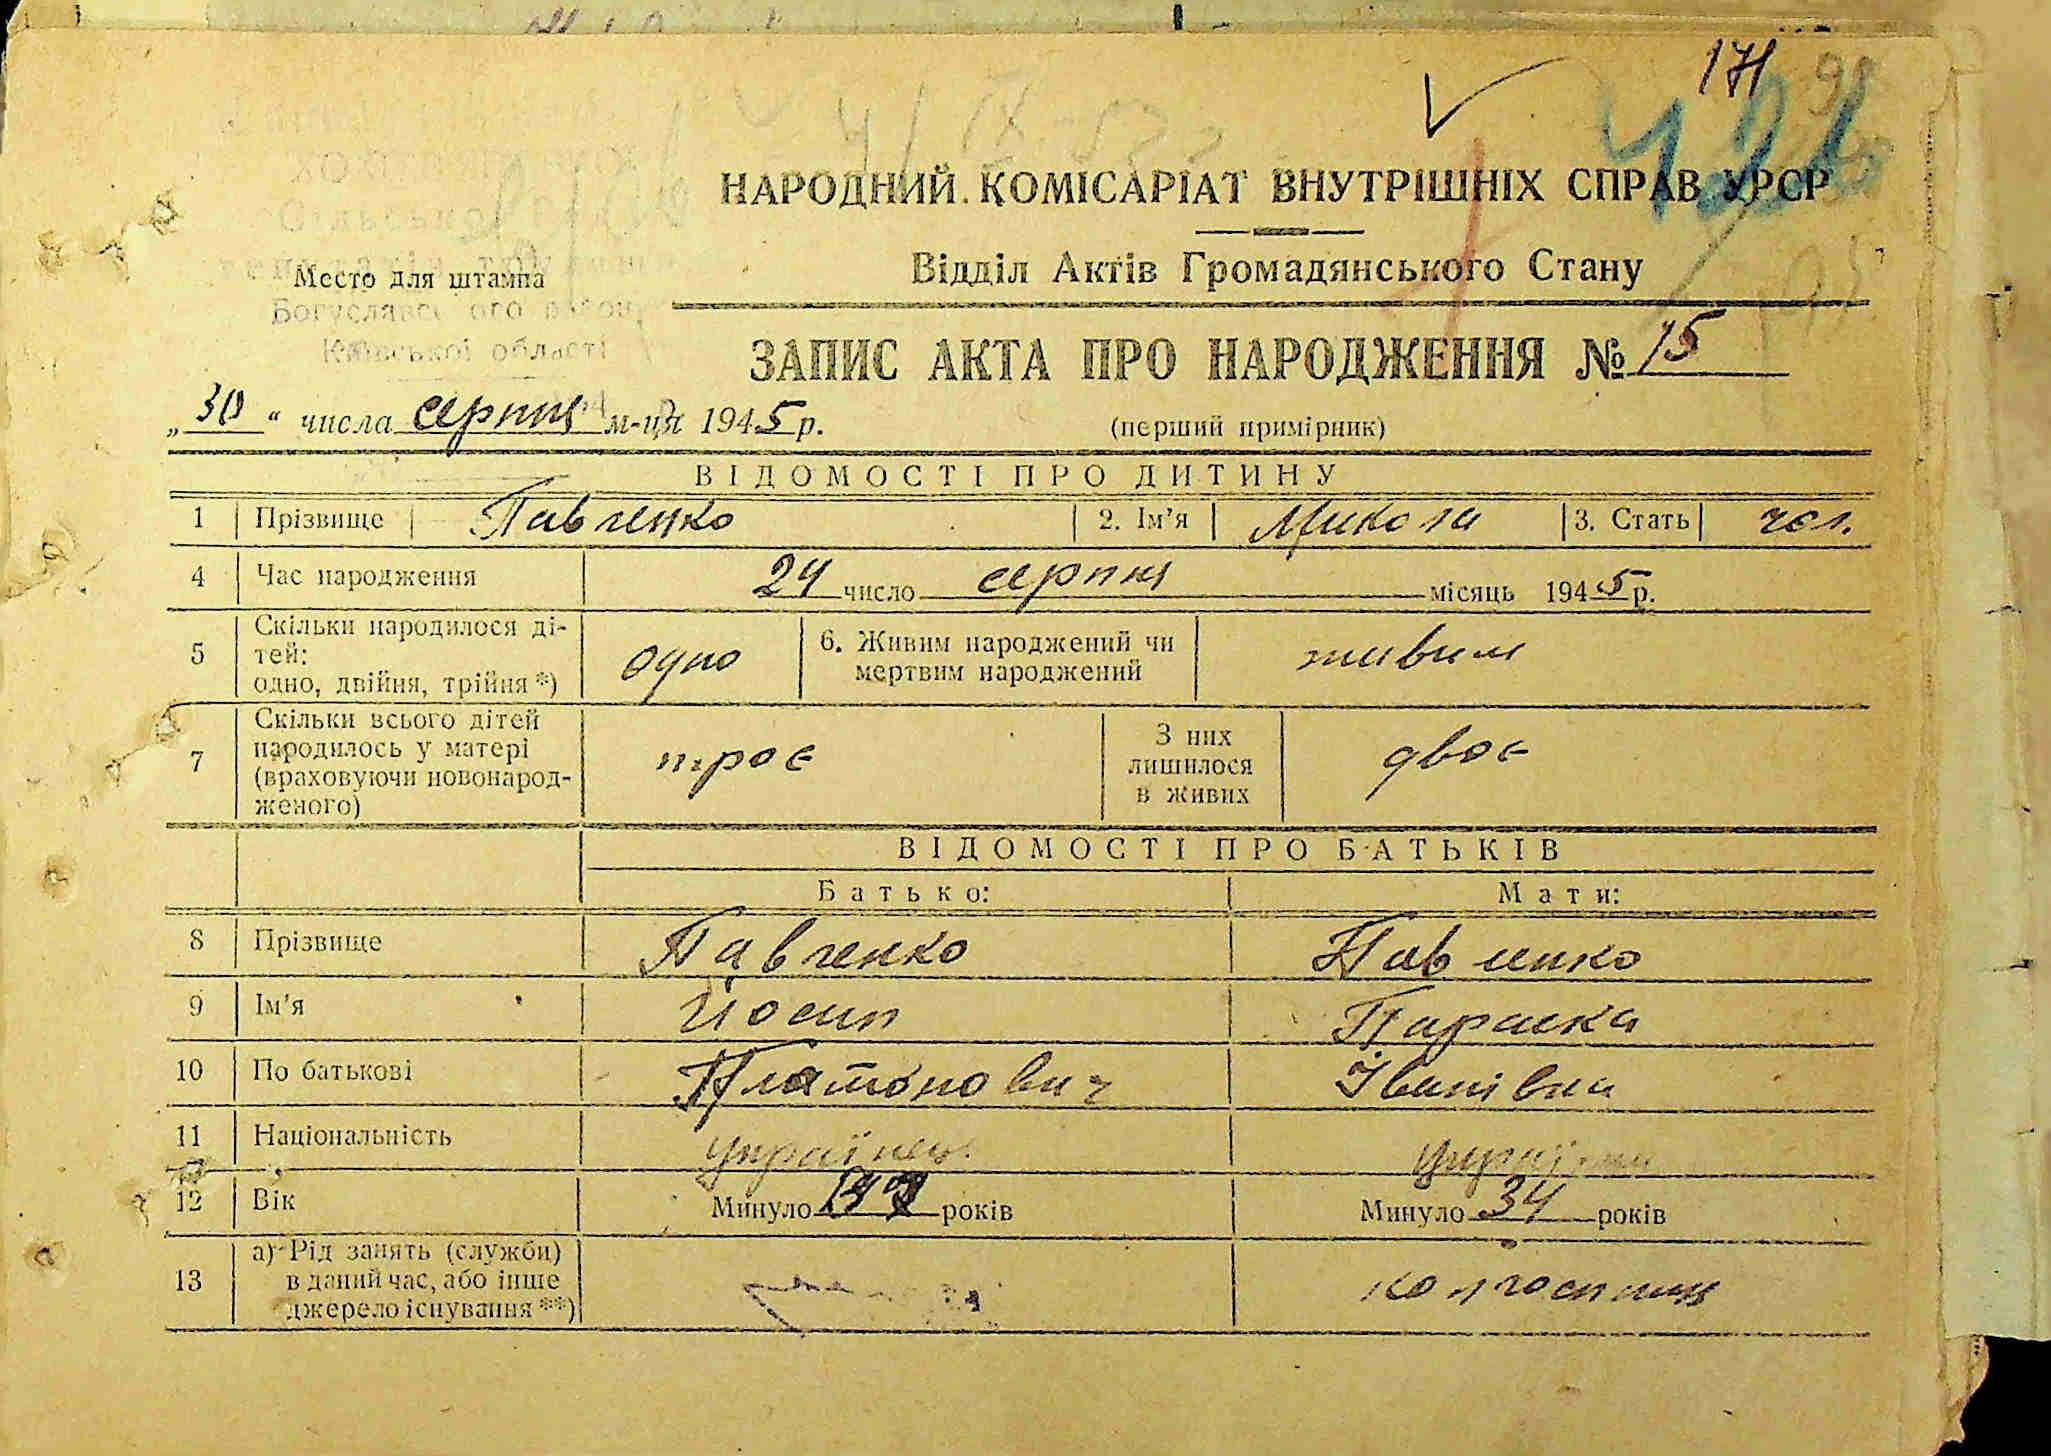 171
НАРОДНИЙ КОМІСАРІАТ ВНУТРІШНІХ СПРАВ УРСР
Відділ Актів Громадянського Стану
Место для штампа
Богуславс ого
Київської області
ЗАПИС АКТА ПРО НАРОДЖЕННЯ № 15
„30“ числа серпня м-ця 1945 р.
(перший примірник)
ВІДОМОСТІ ПРО ДИТИНУ
1 Прізвище Павченко 2. Ім'я Микола 3. Стать чол.
4 Час народження 24 число серпня місяць 1945 р.
5 Скільки народилося ді-
тей:
одно, двійня, трійня *) одно 6. Живим народжений чи
мертвим народжений живим
7 Скільки всього дітей
народилось у матері
(враховуючи новонарод-
женого) троє З них
лишилося
в живих двоє
ВІДОМОСТІ ПРО БАТЬКІВ
Батько: Мати:
8 Прізвище Павченко Павченко
9 Ім'я Йосип Параска
10 По батькові Платонович Іванівна
11 Національність українець
12 Вік Минуло років Минуло 34 років
13 а) Рід занять (служби)
в даний час, або інше
джерело існування **) колгоспниця